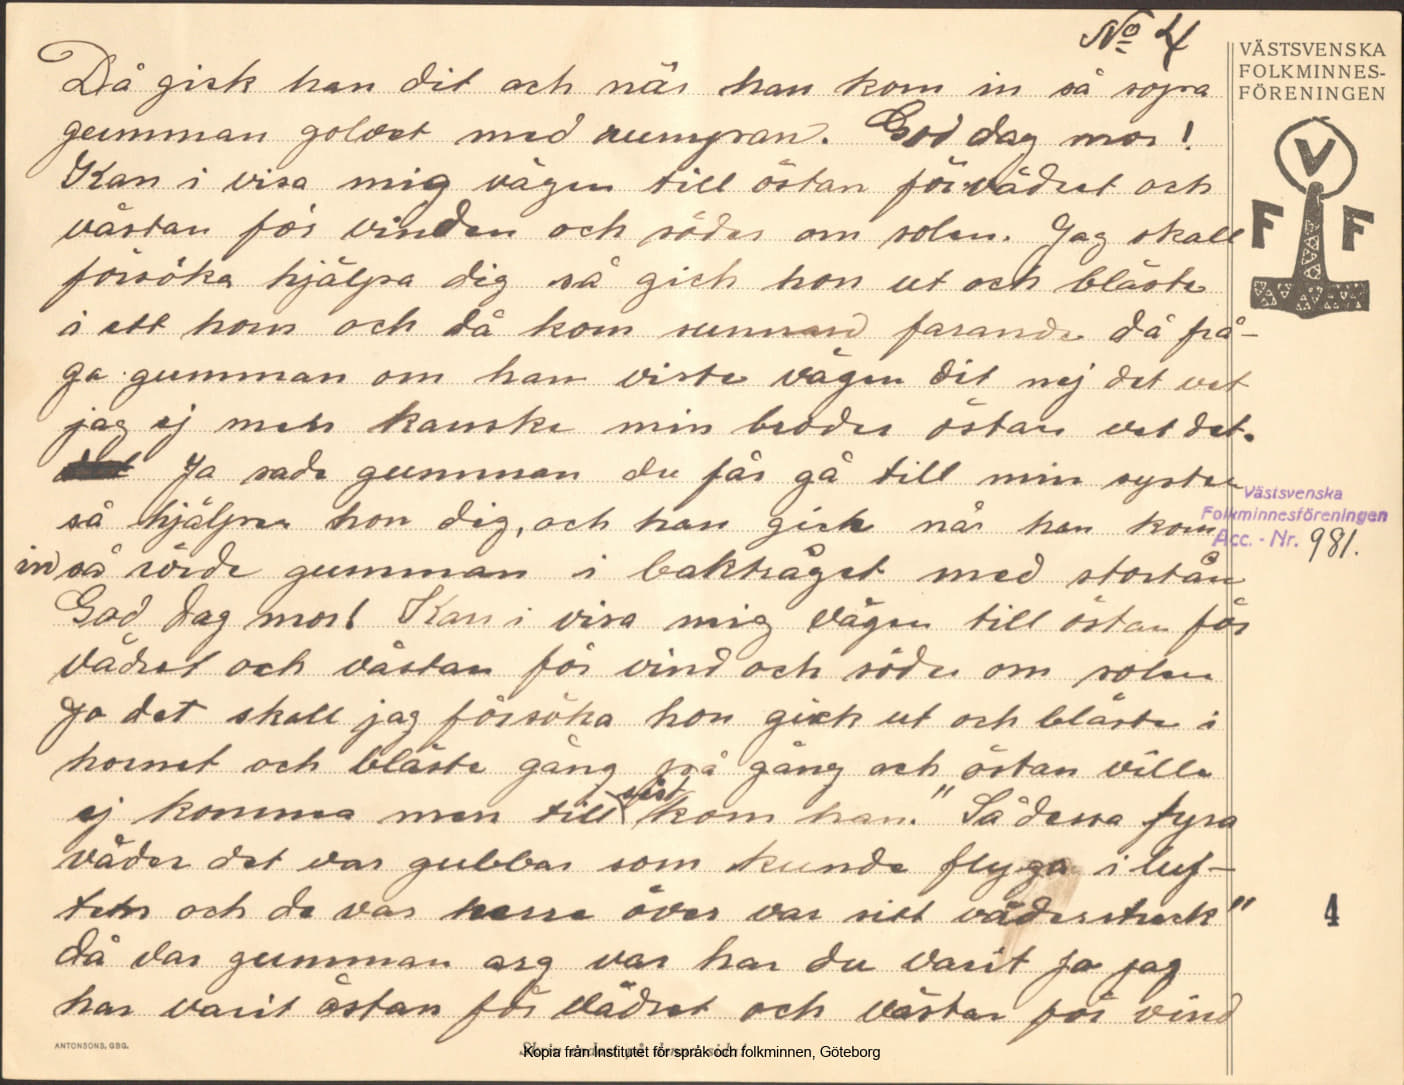 No 4
Då gick han dit och när han kom in så sopa
gumman golvet med rumpran. God dag mor!
Kan i visa mig vägen till östan för vädret och
västan för vinden och söder om solen. Jag skall
försöka hjälpa dig så gich hon ut och blåste
i ett horn och då kom sunnan farande då frå-
ga gumman om han viste vägen dit nej det vet
jag ej men kanske min broder östan vet det.
Ja sade gumman du får gå till min syster
så hjälper hon dig, och han gick när han kom
in så rörde gumman i baktråget med stortån
God dag mor! Kan i visa mig vägen till östan för
vädret och västan för vind och söder om solen
Ja det skall jag försöka hon gick ut och blåste i
hornet och blåste gång på gång och östan ville
ej komma men till sist kom han. " Så dessa fyra
väder det var gubbar som kunde flyga i luf-
ten och de var herre över var sitt väderstreck"
då var gumman arg var har du varit ja jag
har varit östan för vädret och västan för vind
VÄSTSVENSKA
FOLKMINNES-
FÖRENINGEN
V
F F
V F F
Västsvenska
Folkminnesföreningen
Acc. - Nr. 981.
4
ANTONSONS, GBG.
Kopia från Institutet för språk och folkminnen, Göteborg